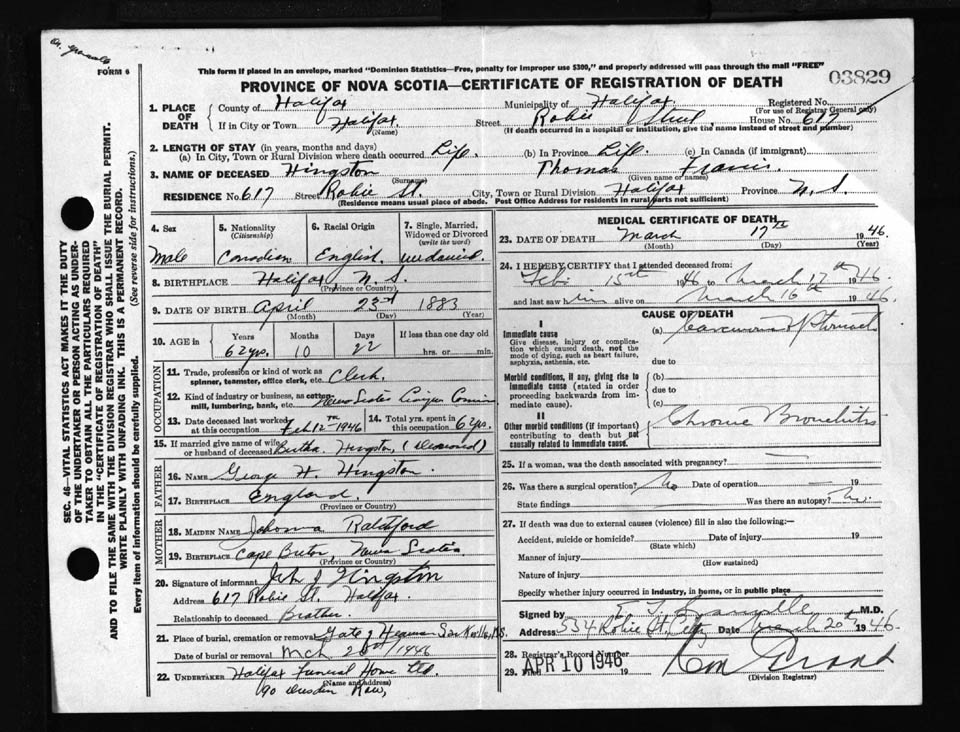 FORM 6
This form if placed in an envelope, marked "Dominion Statistics—Free, penalty for improper use $300," and properly addressed will pass through the mail "FREE"
PROVINCE OF NOVA SCOTIA—CERTIFICATE OF REGISTRATION OF DEATH
03829
1. PLACE OF DEATH
County of Halifax Municipality of Halifax Registered No.
(For use of Registrar General only)
If in City or Town Halifax Street Robie Street House No. 617
(Name) (If death occurred in a hospital or institution, give the name instead of street and number)
2. LENGTH OF STAY (in years, months and days)
(a) In City, Town or Rural Division where death occurred Life. (b) In Province Life. (c) In Canada (if immigrant)
3. NAME OF DECEASED Hingston Thomas Francis.
(Surname) (Given name or names)
RESIDENCE No. 617 Street Robie St. City, Town or Rural Division Halifax Province N.S.
(Residence means usual place of abode. Post Office Address for residents in rural parts not sufficient)
4. Sex
Male
5. Nationality
(Citizenship)
Canadian
6. Racial Origin
English
7. Single, Married,
Widowed or Divorced
(write the word)
8. BIRTHPLACE Halifax N.S.
(Province or Country)
9. DATE OF BIRTH April 23rd 1883
(Month) (Day) (Year)
10. AGE in Years Months Days If less than one day old
62 yrs. 10 22 hrs. or min.
OCCUPATION
11. Trade, profession or kind of work as
spinner, teamster, office clerk, etc. Clerk.
12. Kind of industry or business, as cotton-
mill, lumbering, bank, etc. Nova Scotia Liquor
13. Date deceased last worked
at this occupation Feb 12th 1946
14. Total yrs. spent in
this occupation 6 yrs.
15. If married give name of wife
or husband of deceased Bertha Hingston, (Deceased)
FATHER
16. NAME George H. Hingston.
17. BIRTHPLACE England.
(Province or Country)
MOTHER
18. MAIDEN NAME Ratchford
19. BIRTHPLACE Cape Breton, Nova Scotia
(Province or Country)
20. Signature of informant J Hingston
Address 617 Robie St. Halifax.
Relationship to deceased Brother.
21. Place of burial, cremation or removal Gate of Heaven Sackville, N.S.
Date of burial or removal Mch 1946
22. UNDERTAKER Halifax Funeral Home Ltd.
(Name and Address)
90 Dresden Row,
MEDICAL CERTIFICATE OF DEATH
23. DATE OF DEATH March 17th 1946.
(Month) (Day) (Year)
24. I HEREBY CERTIFY that I attended deceased from:
Feb. 15th 1946 to March 17th 1946
and last saw him alive on March 16th 1946.
CAUSE OF DEATH
I
Immediate cause
Give disease, injury or complica-
tion which caused death, not the
mode of dying, such as heart failure,
asphyxia, asthenia, etc.
(a) Carcinoma of Stomach
due to
Morbid conditions, if any, giving rise to
immediate cause (stated in order
proceeding backwards from
immediate cause).
(b)
due to
(c)
II
Other morbid conditions (if important)
contributing to death but not
causally related to immediate cause.
Chronic Bronchitis
25. If a woman, was the death associated with pregnancy?
26. Was there a surgical operation? No Date of operation 19
State findings Was there an autopsy? No.
27. If death was due to external causes (violence) fill in also the following:—
Accident, suicide or homicide? Date of injury 19
(State which)
Manner of injury
(How sustained)
Nature of injury
Specify whether injury occurred in industry, in home, or in public place
Signed by M.D.
Address 534 Robie St. City Date March 20th 1946.
28. Registrar's Record Number
29. Filed 19
APR 10 1946
(Division Registrar)
SEC. 46—VITAL STATISTICS ACT MAKES IT THE DUTY
OF THE UNDERTAKER OR PERSON ACTING AS UNDER-
TAKER TO OBTAIN ALL THE PARTICULARS REQUIRED
IN THE "CERTIFICATE OF REGISTRATION OF DEATH"
AND TO FILE THE SAME WITH THE DIVISION REGISTRAR WHO SHALL ISSUE THE BURIAL PERMIT.
WRITE PLAINLY WITH UNFADING INK. THIS IS A PERMANENT RECORD.
Every item of information should be carefully supplied. (See reverse side for instructions.)